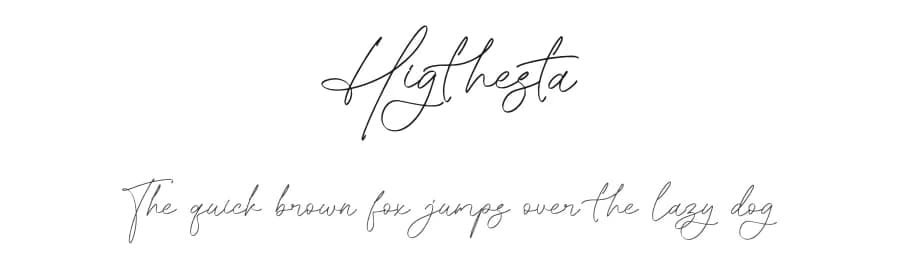 Higthesta
The quick brown fox jumps over the lazy dog